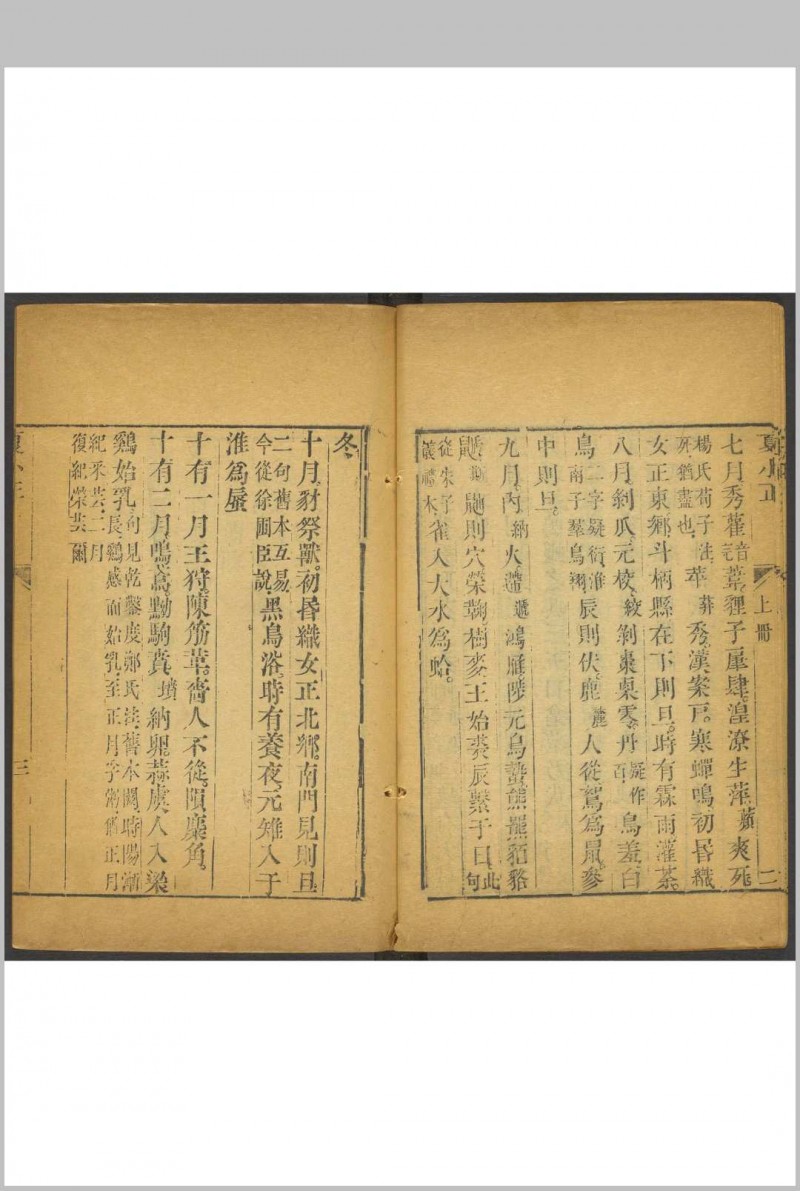 夏小正 上冊 二
七月秀雚葦貍子肇肆湟潦生苹蘋爽死
楊氏荀子注
死猶盡也
莽秀漢案戶寒蟬鳴初昏織
女正東鄉斗柄縣在下則旦時有霖雨灌荼
八月剝瓜元校絞剝棗栗零丹疑作百鳥羞白
鳥二字疑衍淮南子羣鳥翔辰則伏鹿麤人從鴽爲鼠參
中則旦
九月內納火遰遞鴻雁陟元鳥蟄熊羆貊貉
鼬則穴榮鞠樹麥王始裘辰繫于日此句
從朱子儀禮本雀入大水爲蛤
冬
十月豺祭獸初昏織女正北鄉南門見則旦
二句舊本互易
今從徐圃臣說
黑鳥浴時有養夜元雉入于
淮爲蜃
十有一月王狩陳筋革嗇人不從隕麋角
十有二月鳴鳶黝駒賁墳納卵蒜虞人入梁
鷄始乳句見乾鑿度鄭氏注舊本闕時陽漸
長鷄感而始乳至正月字粥舊正月
紀采芸二月
復紀榮芸爾
夏小正 三